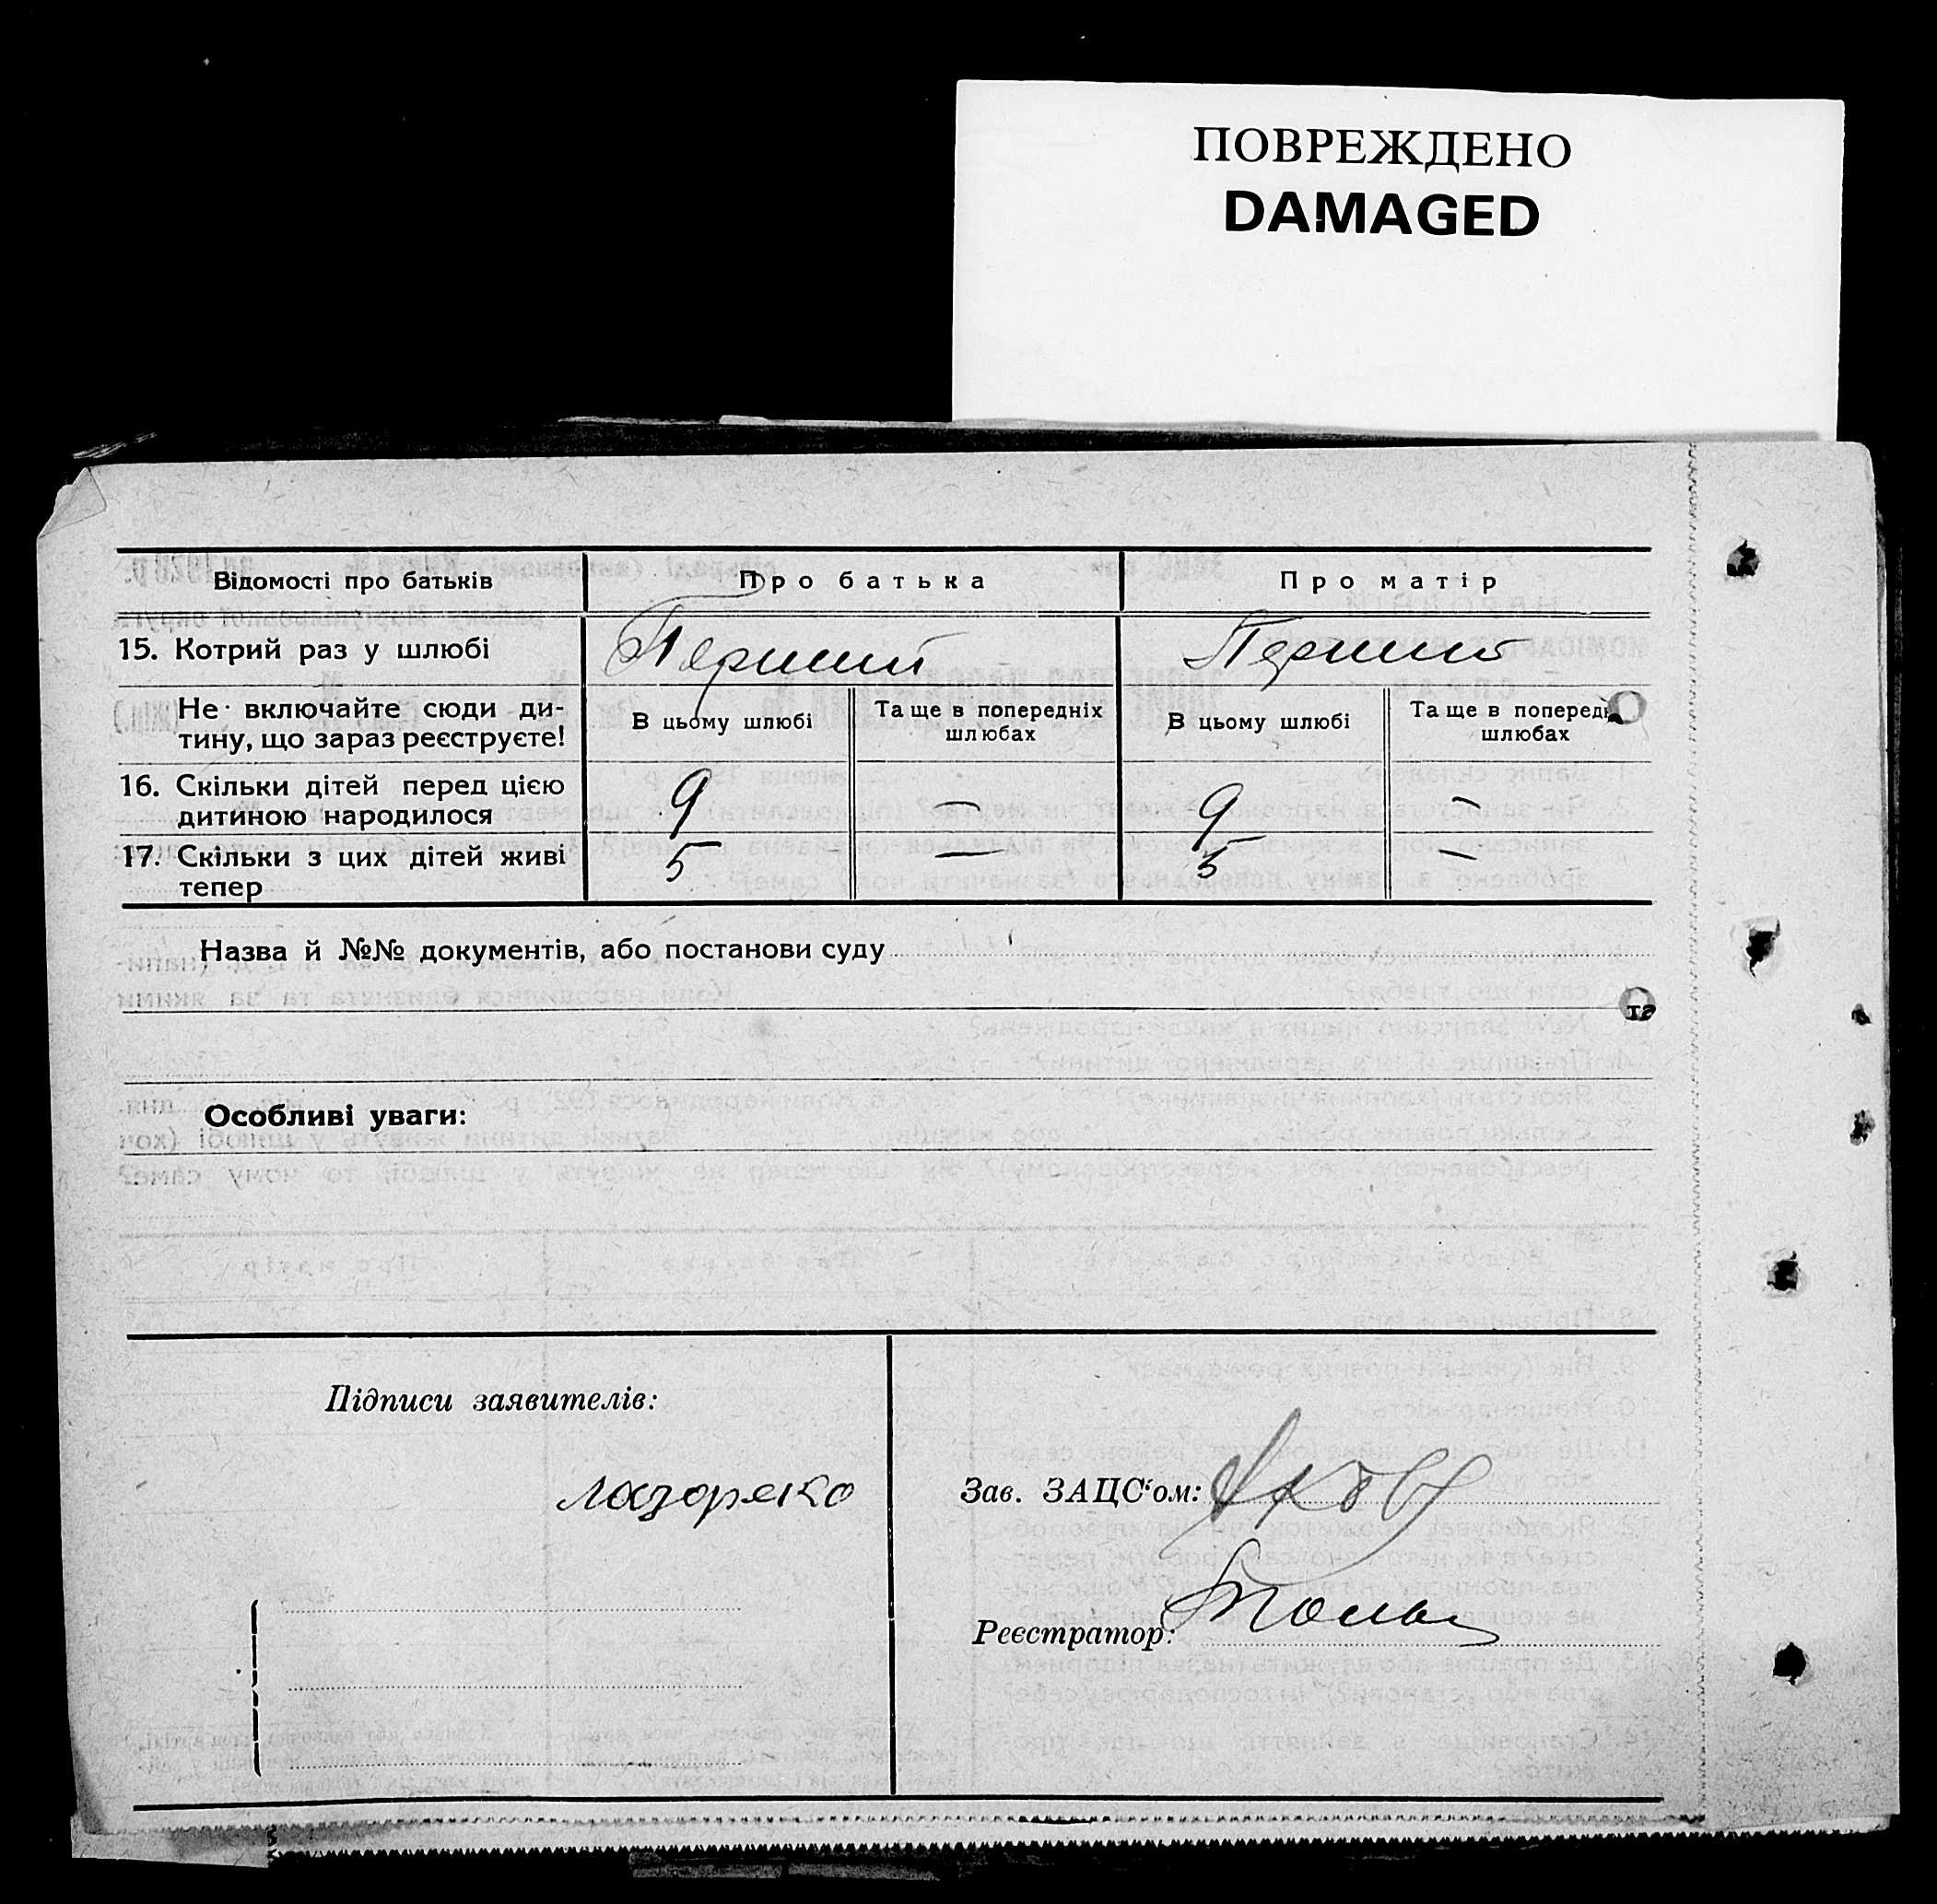 ПОВРЕЖДЕНО
DAMAGED
Відомості про батьків Про батька Про матір
15. Котрий раз у шлюбі Перший Перший
Не включайте сюди ди-
тину, що зараз реєструєте!
В цьому шлюбі Та ще в попередніх
шлюбах
В цьому шлюбі Та ще в попередн
шлюбах
16. Скільки дітей перед цією
дитиною народилося 9 — 9 —
17. Скільки з цих дітей живі
тепер 5 — 5 —
Назва й №№ документів, або постанови суду
Особливі уваги:
Підписи заявителів:
Лазоренко
Зав. ЗАЦС'ом:
Реєстратор: